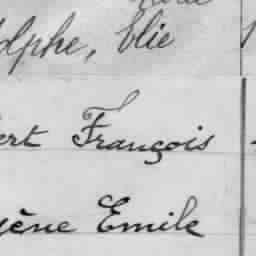 olphe, Elie
ert François
gène Emile